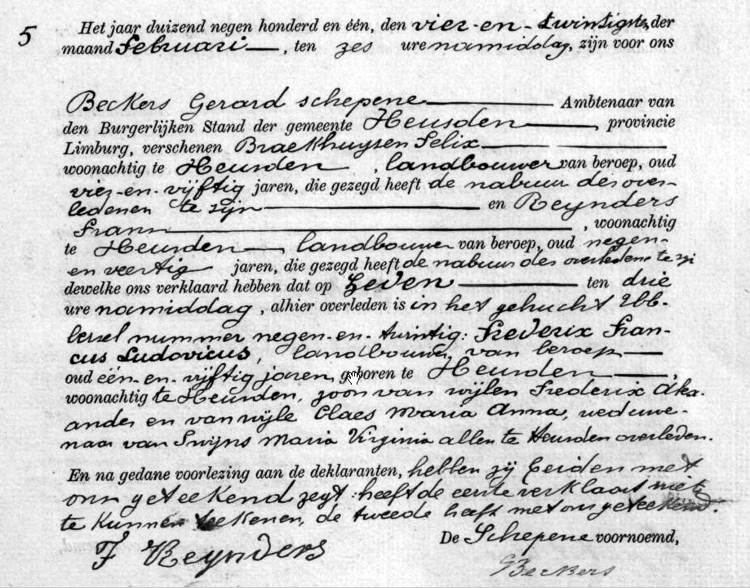 5 Het jaar duizend negen honderd en één, den vier-en-twintigste der
maand Februari —, ten zes ure namiddag, zijn voor ons
Beckers Gerard schepene — Ambtenaar van
den Burgerlijken Stand der gemeente Heusden —, provincie
Limburg, verschenen Braekhuysen Felix —
woonachtig te Heusden, landbouwer van beroep, oud
vier-en-vijftig jaren, die gezegd heeft de nabuur des over-
ledenen te zijn — en Reynders
Frans —, woonachtig
te Heusden —, landbouwer van beroep, oud negen-
en veertig jaren, die gezegd heeft de nabuur des overledene te zijn
dewelke ons verklaard hebben dat op heden — ten drie
ure namiddag, alhier overleden is in het gehucht Ubb-
ersel nummer negen-en-twintig: Frederix Fran-
cus Ludovicus, landbouwer van beroep —
oud één-en-vijftig jaren, geboren te Heusden —,
woonachtig te Heusden, zoon van wijlen Frederix Alex-
ander en van wijle Claes Maria Anna, weduwe-
naar van Swijns Maria Virginia allen te Heusden overleden.
En na gedane voorlezing aan de deklaranten, hebben zij beiden met
ons geteekend zegt: heeft de eerste verklaart niet
te kunnen teekenen, de tweede heeft met ons geteekend.
De Schepene voornoemd,
F Reynders
Beckers